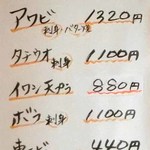 アワビ 刺身 バター焼 1320円
タチウオ 刺身 1100円
イワシ天プラ 880円
ボラ 刺身 1100円
440円